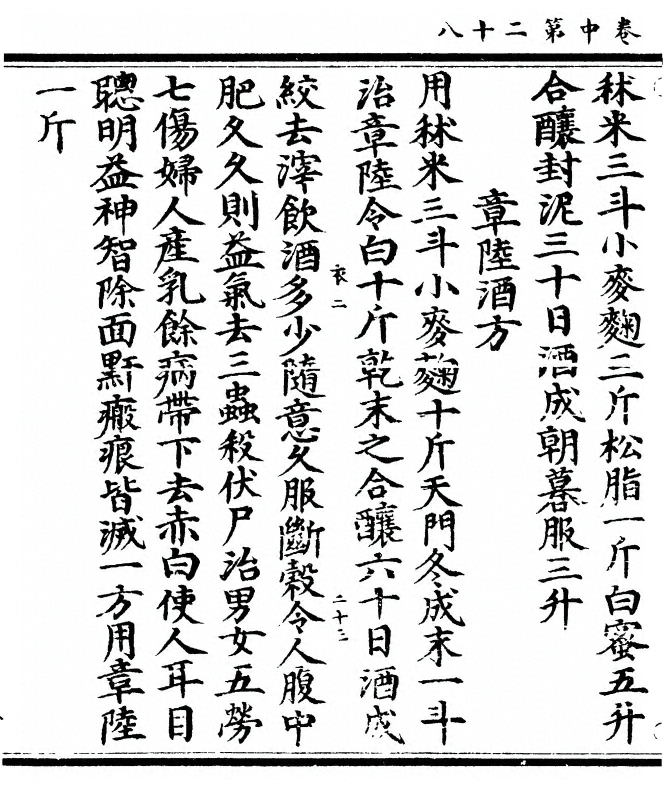 卷中第二十八
秫米三斗小麥麴三斤松脂一斤白蜜五升
合釀封泥三十日酒成朝暮服三升
章陸酒方
用秫米三斗小麥麴十斤天門冬成末一斗
治章陸令白十斤乾末之合釀六十日酒成
絞去滓飲酒多少隨意久服斷穀令人腹中
肥久久則益氣去三蟲殺伏尸治男女五勞
七傷婦人產乳餘病帶下去赤白使人耳目
聰明益神智除面黑干瘢痕皆滅一方用章陸
一斤
衮二
二十三